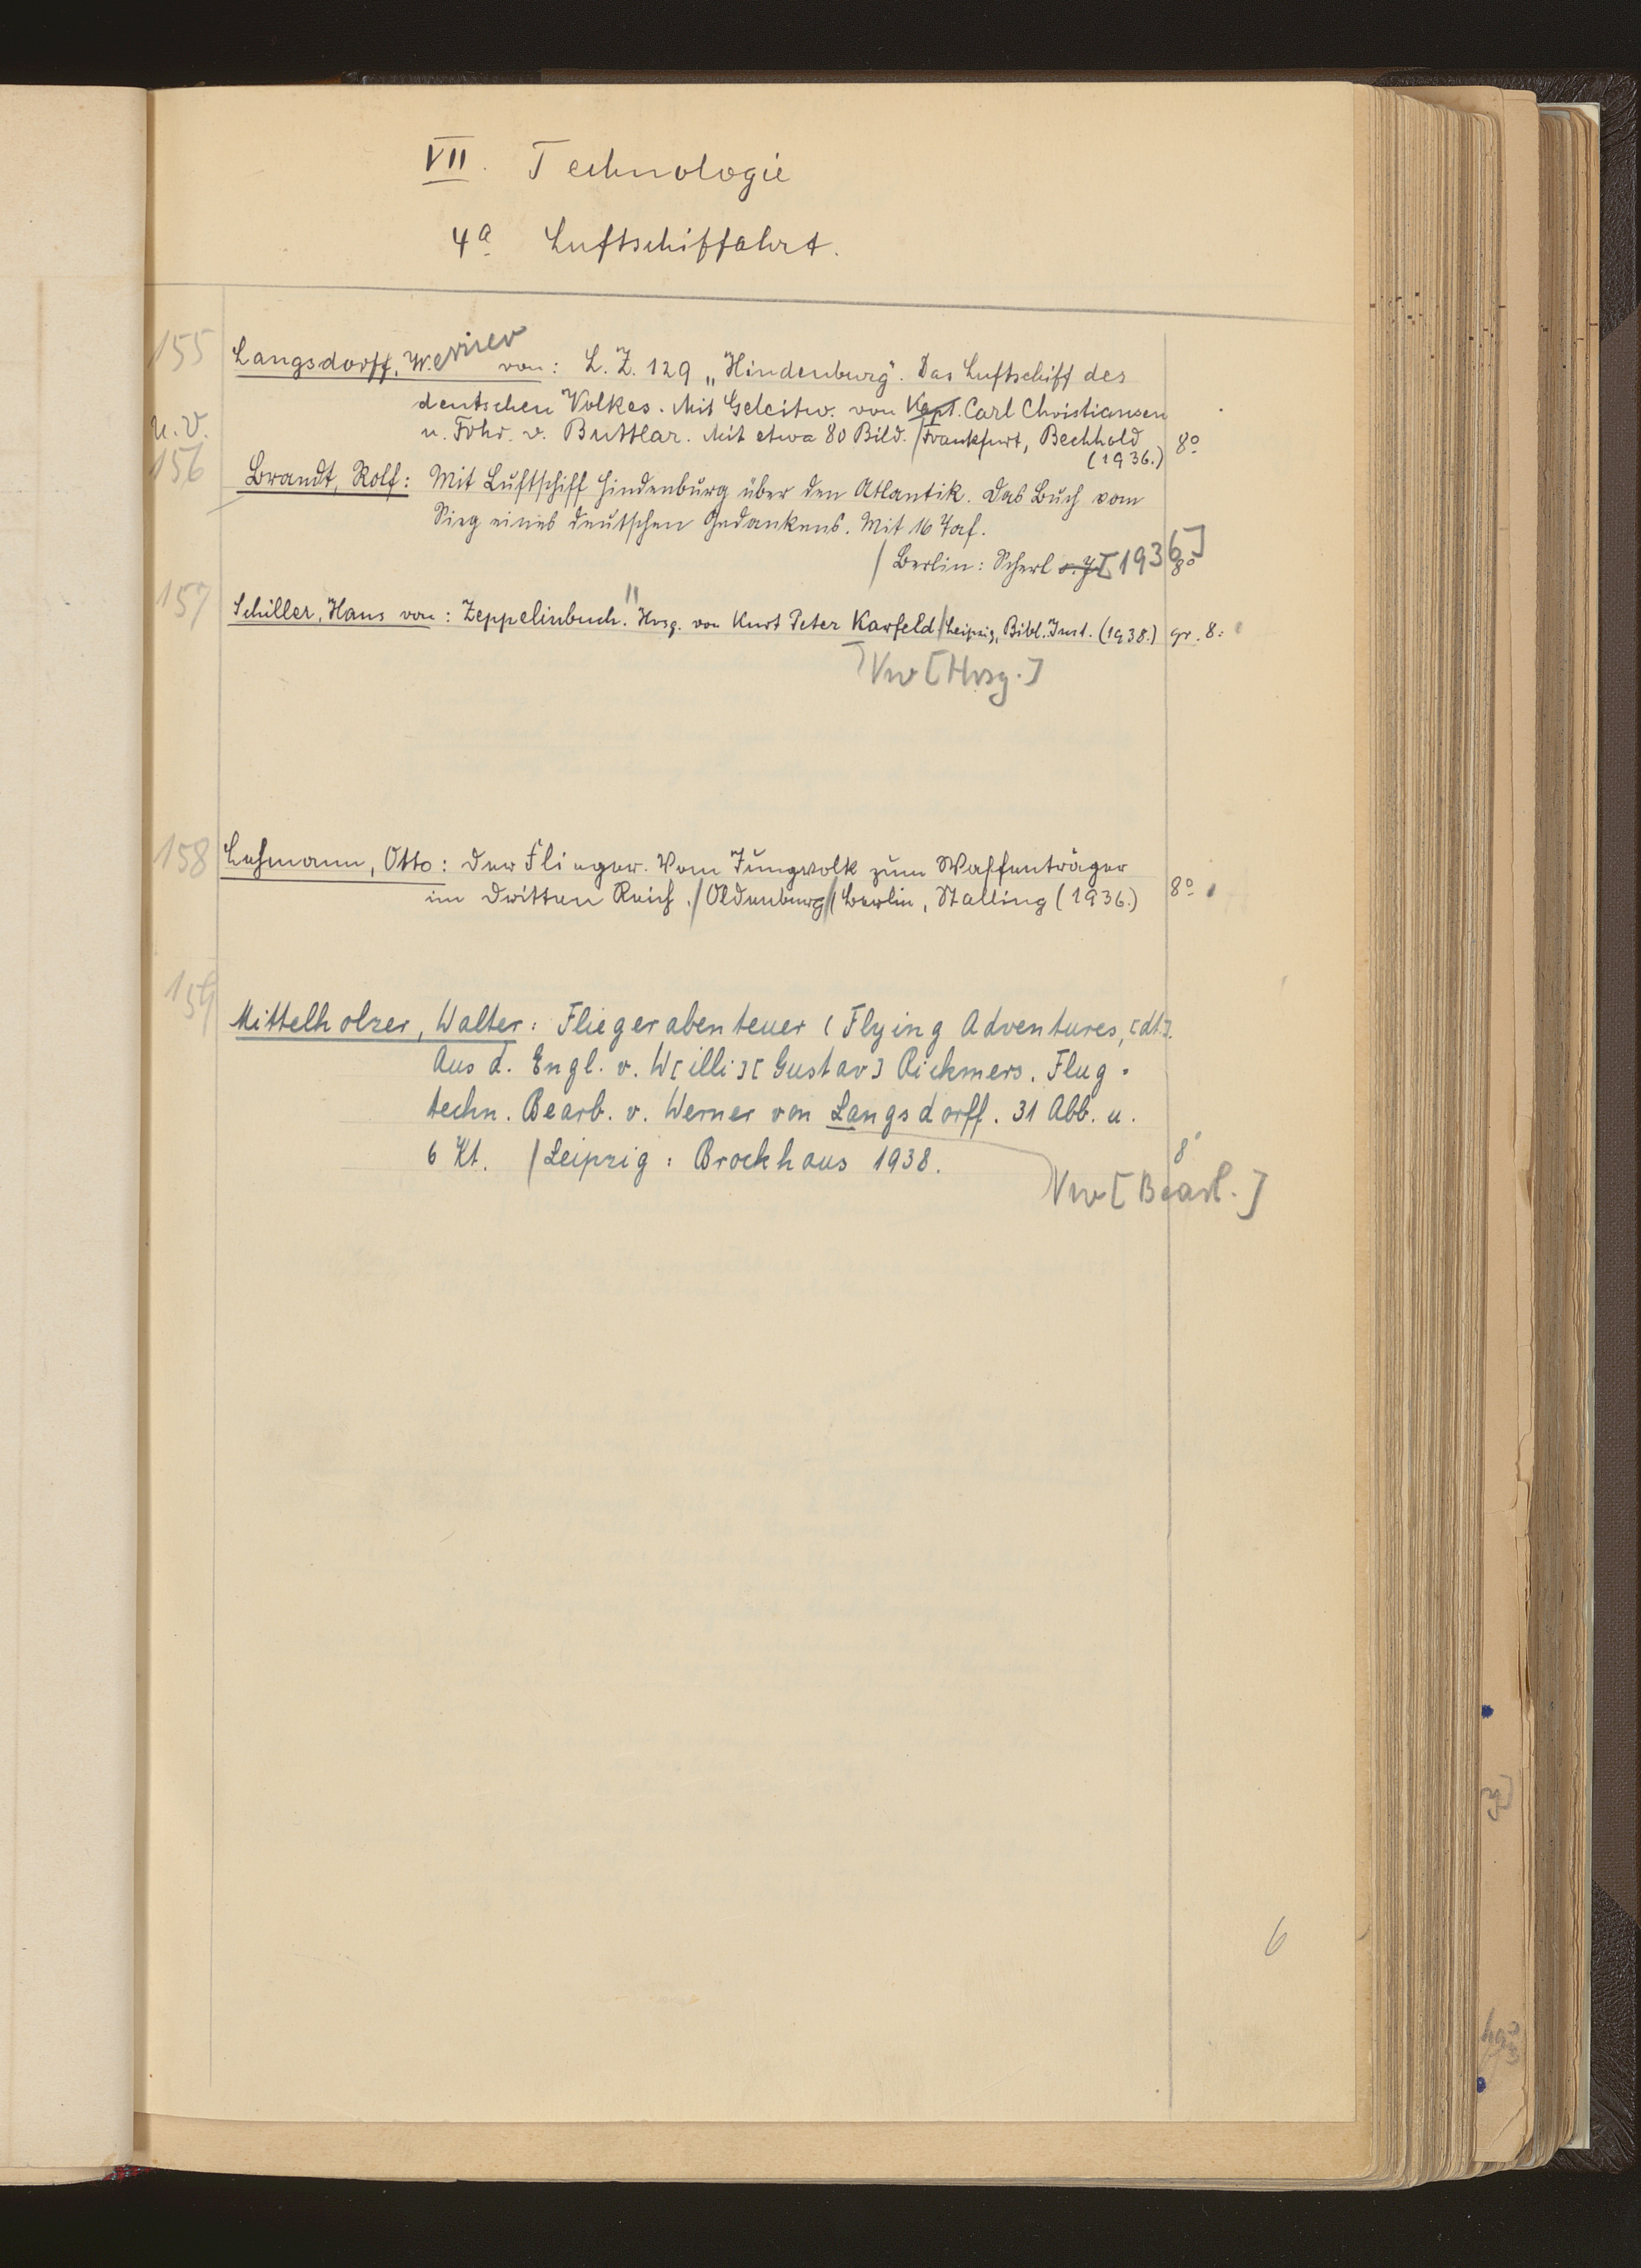 VII. Technologie
4a Luftschiffahrt.
155 Langsdorff, Werner von: L. Z. 129 „Hindenburg". Das Luftschiff des
deutschen Volkes. Mit Geleitw. von Kapt. Carl Christiansen
u. V. u. Frhr. v. Buttlar. Mit etwa 80 Bild. / Frankfurt, Bechhold 8°
(1936.)
156 Brandt, Rolf: Mit Luftschiff Hindenburg über den Atlantik. Das Buch vom
Sieg eines deutschen Gedankens. Mit 16 Taf.
/ Berlin: Scherl o. J. [1936] 8°
157 Schiller, Hans von: Zeppelinbuch. Hrsg. von Kurt Peter Karfeld / Leipzig, Bibl. Inst. (1938.) gr. 8:
Vw [Hrsg.]
158 Lehmann, Otto: Der Flieger. Vom Jungvolk zum Waffenträger
im Dritten Reich. / Oldenburg / Berlin, Stalling (1936.) 8°
159 Mittelholzer, Walter: Fliegerabenteuer (Flying Adventures, [dt.].
Aus d. Engl. v. W[illi] [Gustav] Rickmers. Flug-
techn. Bearb. v. Werner von Langsdorff. 31 Abb. u.
6 Kt. / Leipzig: Brockhaus 1938. 8°
Vw [Bearb.]
6